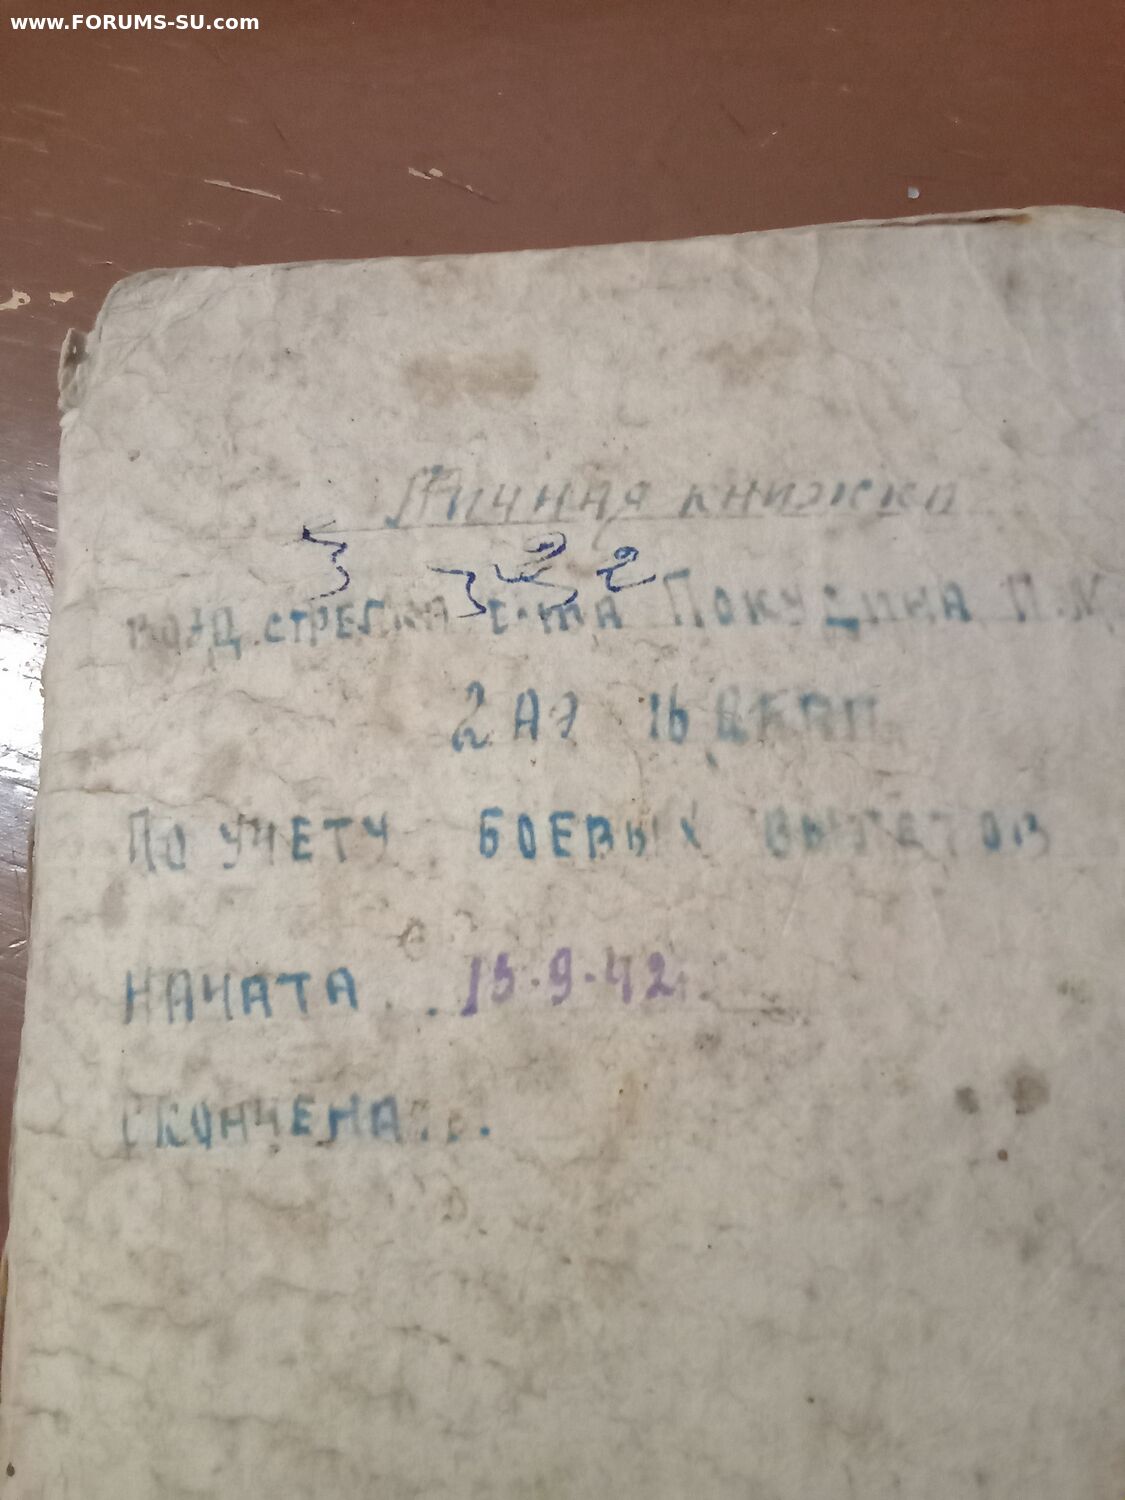 www.FORUMS-SU.com
Личная книжка
возд. стрелка с-та П. К.
2 АЭ 16
По учету боевых вылетов
НАЧАТА . . 13.9.42
СКОНЧЕНА . . .